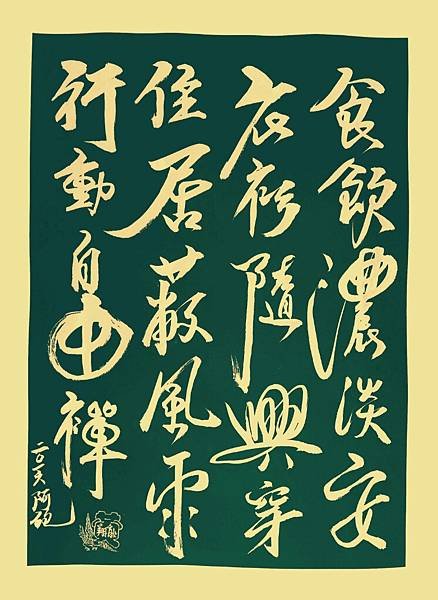 食飲濃淡安
衣衫隨興穿
住居蔽風雨
行動自由禪
二〇一六阿砲